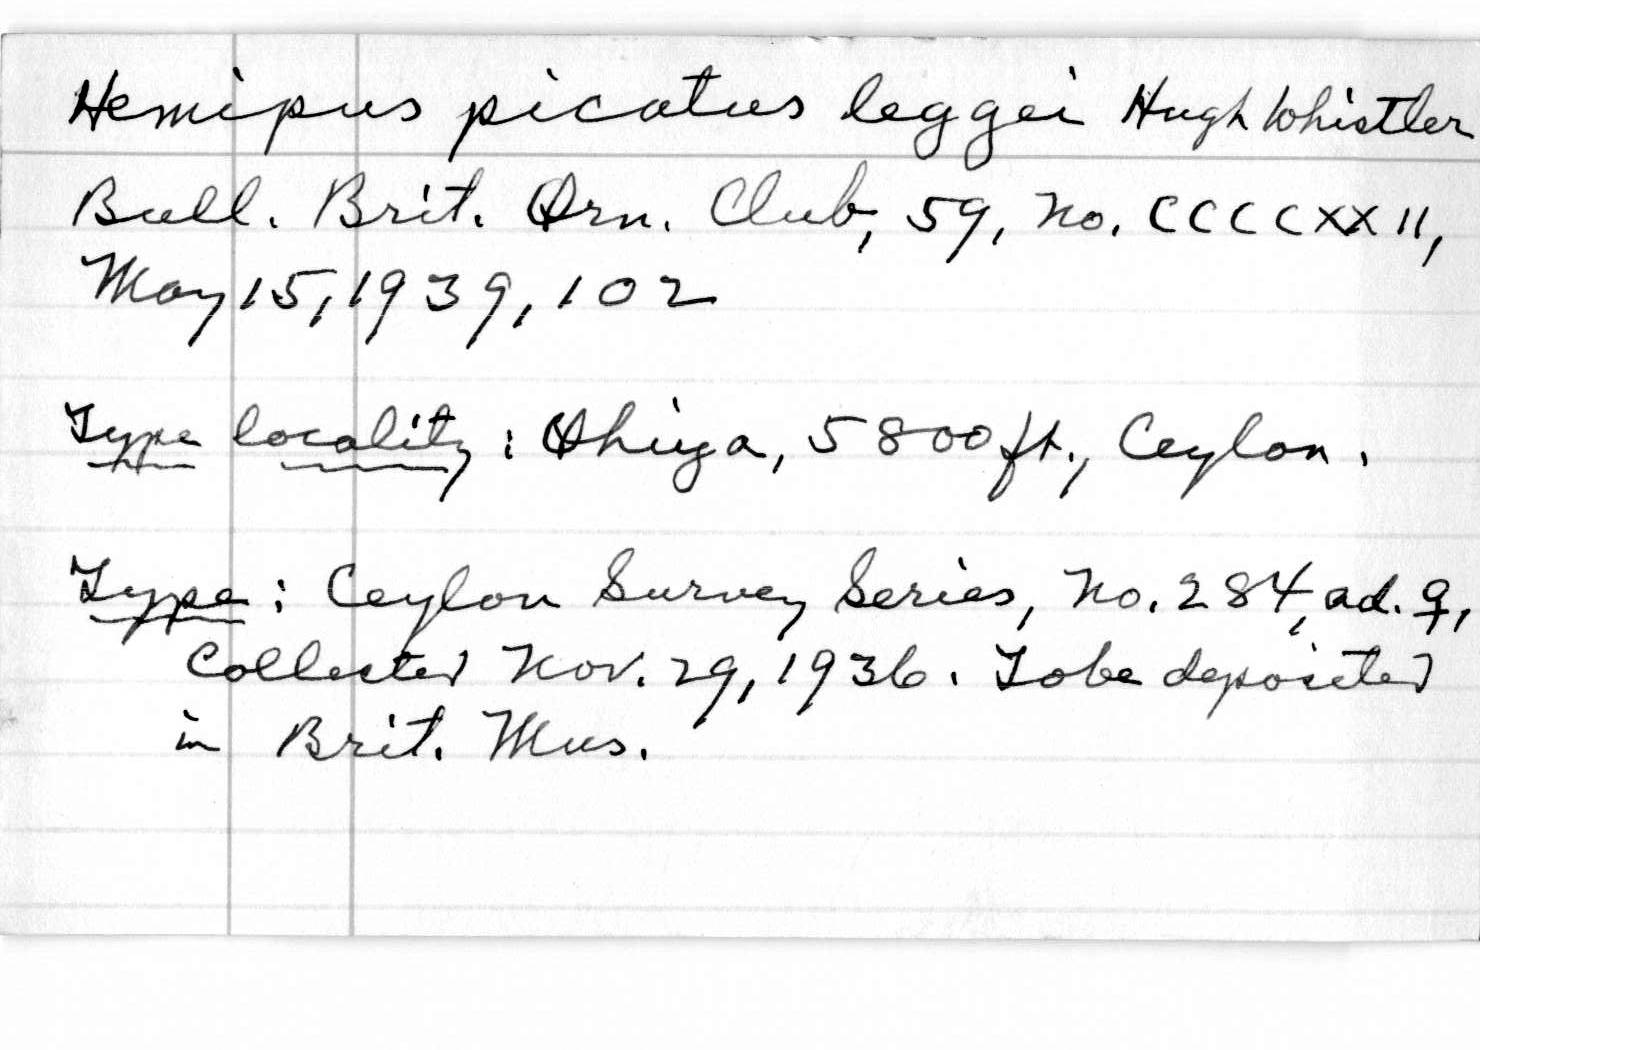 Hemipus picatus leggei Hugh Whistler
Bull. Brit. Orn. Club, 59, No. CCCCXXII,
May 15, 1939, 102
Type locality: Ohiya, 5800 ft., Ceylon.
Type: Ceylon Survey Series, No. 284, ad. ♀,
Collected Nov. 29, 1936. To be deposited
in Brit. Mus.